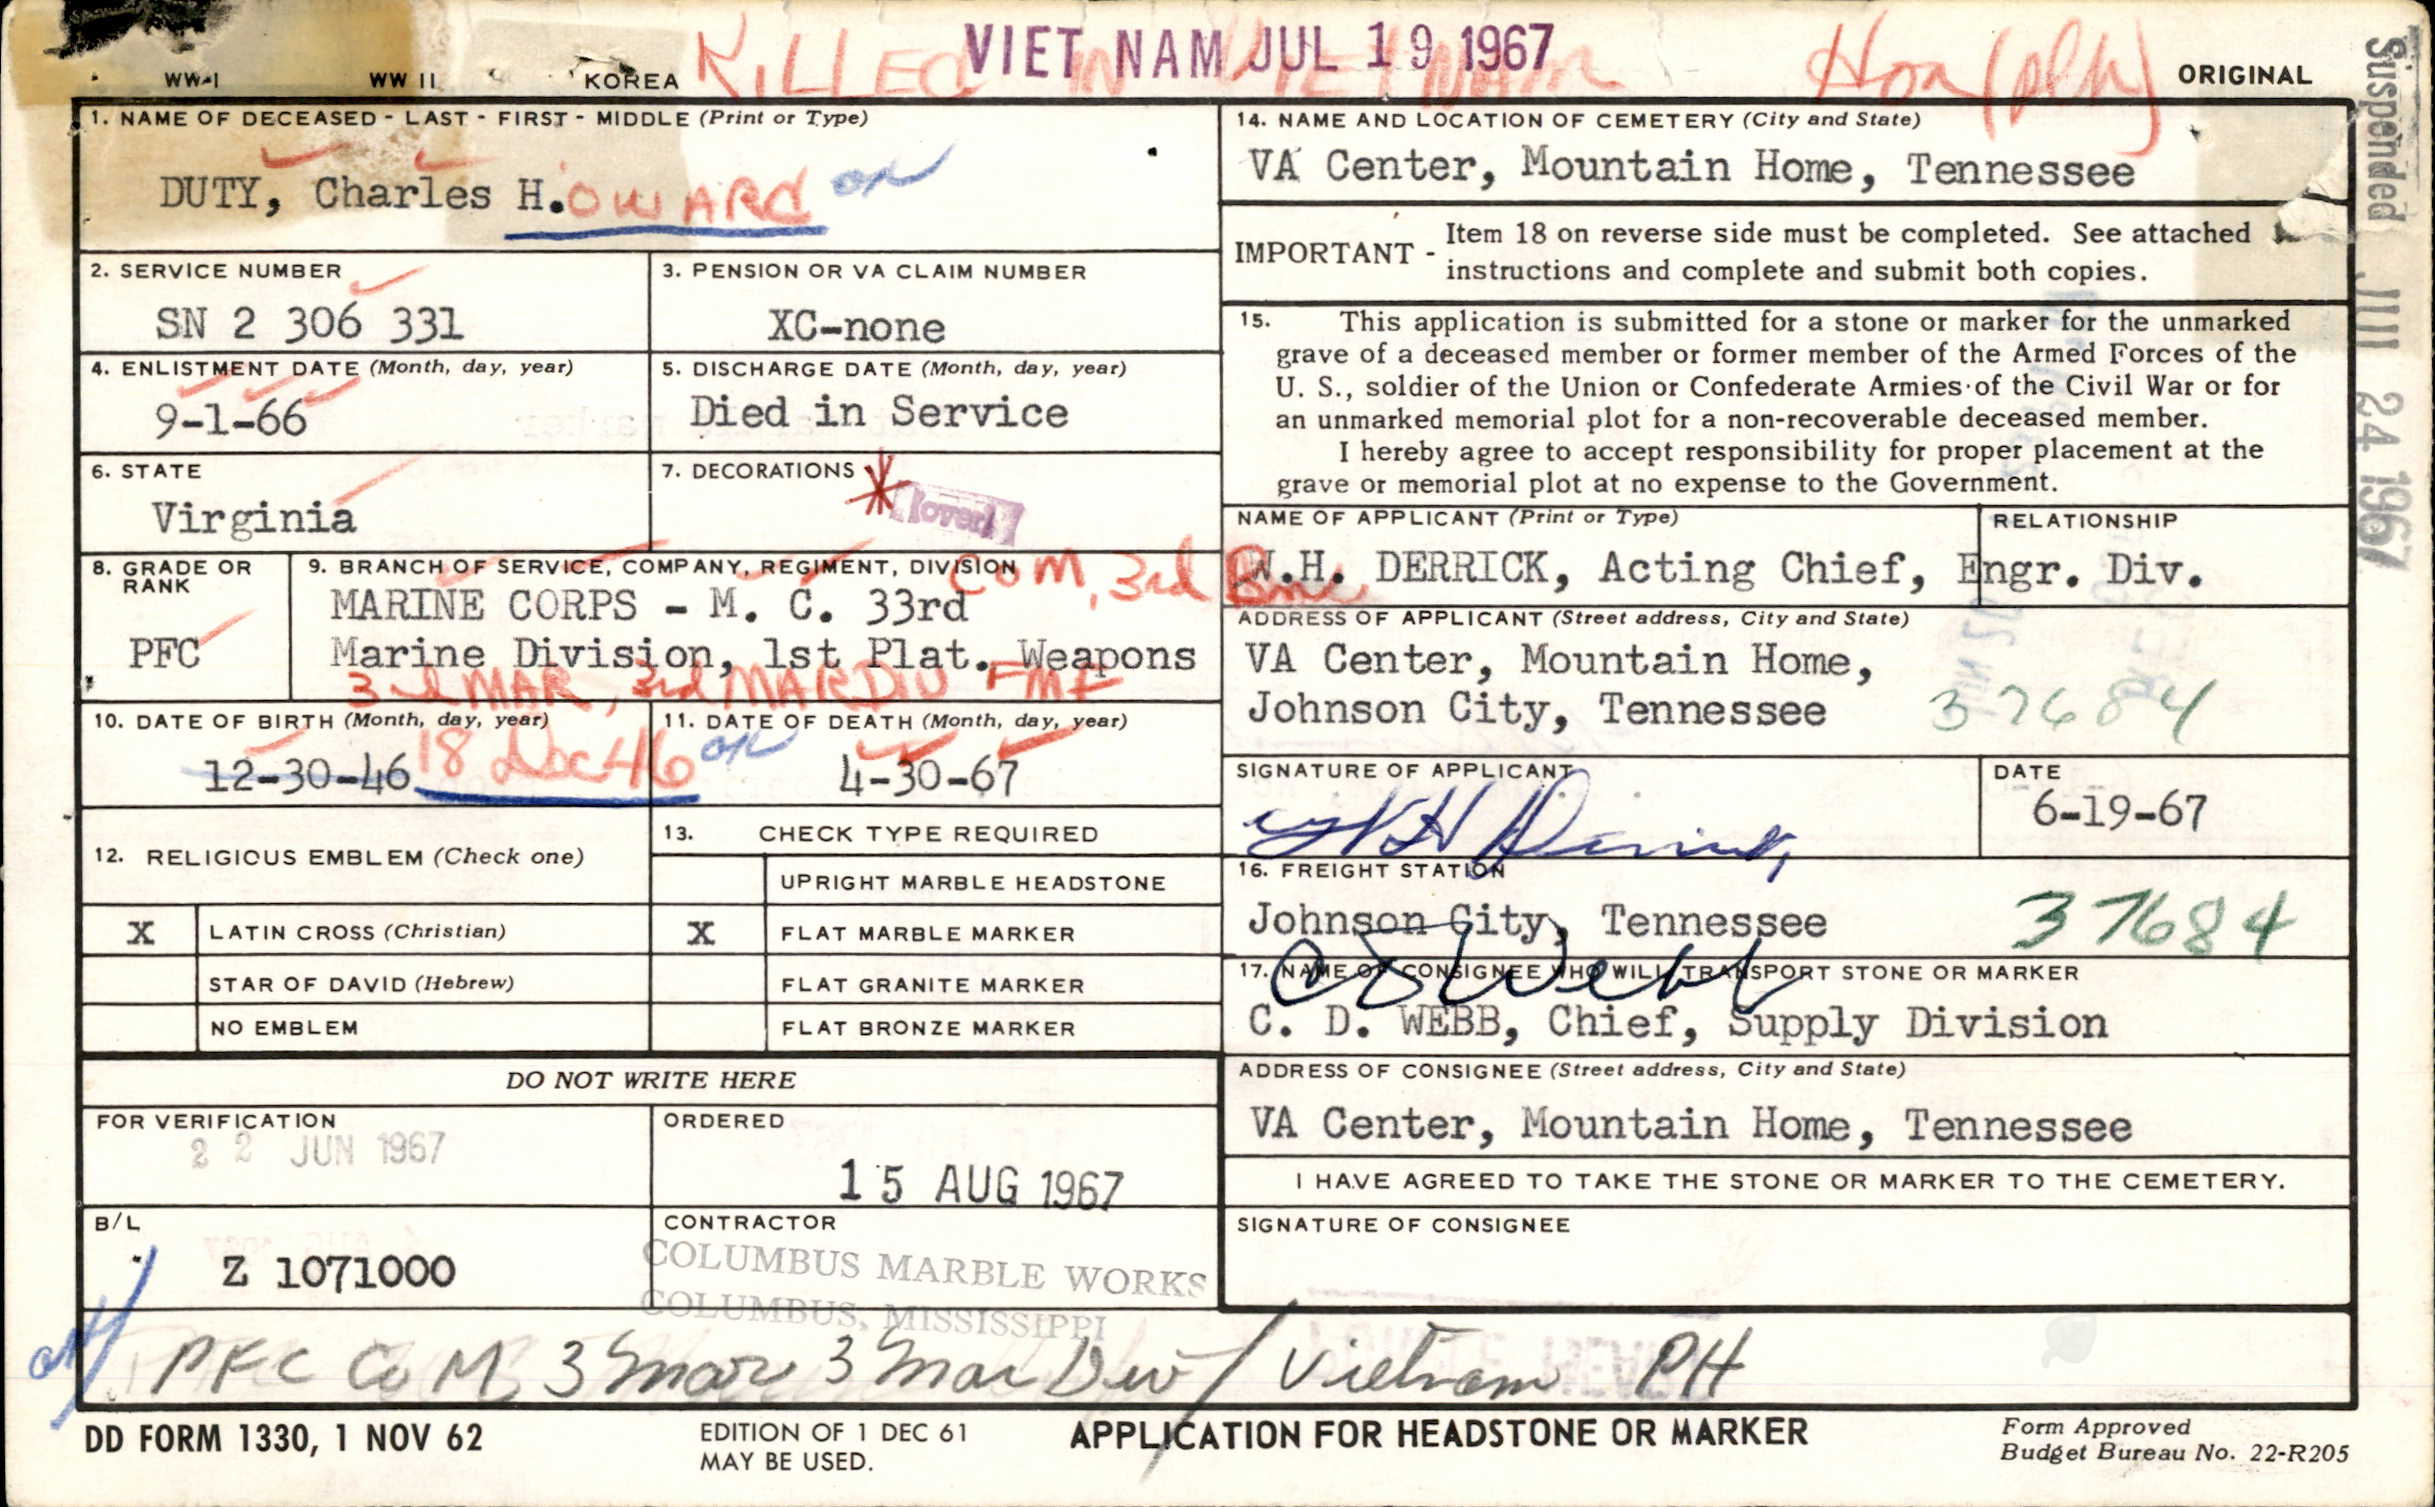 WW-I WW II KOREA KILLED IN VIETNAM VIET NAM JUL 19 1967 ORIGINAL
Suspended JUL 24 1967
1. NAME OF DECEASED - LAST - FIRST - MIDDLE (Print or Type)
DUTY, Charles H.OWARD OK
2. SERVICE NUMBER
SN 2 306 331
3. PENSION OR VA CLAIM NUMBER
XC-none
4. ENLISTMENT DATE (Month, day, year)
9-1-66
5. DISCHARGE DATE (Month, day, year)
Died in Service
6. STATE
Virginia
7. DECORATIONS *
(over)
8. GRADE OR RANK
PFC
9. BRANCH OF SERVICE, COMPANY, REGIMENT, DIVISION
Co M, 3rd Bn
MARINE CORPS - M. C. 33rd
Marine Division, 1st Plat. Weapons
3rd MAR, 3rd MARDIV FMF
10. DATE OF BIRTH (Month, day, year)
12-30-46 18 Dec 46 OK
11. DATE OF DEATH (Month, day, year)
4-30-67
12. RELIGIOUS EMBLEM (Check one)
X LATIN CROSS (Christian)
STAR OF DAVID (Hebrew)
NO EMBLEM
13. CHECK TYPE REQUIRED
UPRIGHT MARBLE HEADSTONE
X FLAT MARBLE MARKER
FLAT GRANITE MARKER
FLAT BRONZE MARKER
DO NOT WRITE HERE
FOR VERIFICATION
22 JUN 1967
ORDERED
15 AUG 1967
B/L
Z 1071000
CONTRACTOR
COLUMBUS MARBLE WORKS
COLUMBUS, MISSISSIPPI
14. NAME AND LOCATION OF CEMETERY (City and State)
VA Center, Mountain Home, Tennessee
IMPORTANT - Item 18 on reverse side must be completed. See attached
instructions and complete and submit both copies.
15. This application is submitted for a stone or marker for the unmarked
grave of a deceased member or former member of the Armed Forces of the
U. S., soldier of the Union or Confederate Armies of the Civil War or for
an unmarked memorial plot for a non-recoverable deceased member.
I hereby agree to accept responsibility for proper placement at the
grave or memorial plot at no expense to the Government.
NAME OF APPLICANT (Print or Type) RELATIONSHIP
W.H. DERRICK, Acting Chief, Engr. Div.
ADDRESS OF APPLICANT (Street address, City and State)
VA Center, Mountain Home,
Johnson City, Tennessee 37684
SIGNATURE OF APPLICANT
DATE
6-19-67
16. FREIGHT STATION
Johnson City, Tennessee 37684
17. NAME OF CONSIGNEE WHO WILL TRANSPORT STONE OR MARKER
C D Webb
C. D. WEBB, Chief, Supply Division
ADDRESS OF CONSIGNEE (Street address, City and State)
VA Center, Mountain Home, Tennessee
I HAVE AGREED TO TAKE THE STONE OR MARKER TO THE CEMETERY.
SIGNATURE OF CONSIGNEE
PFC Co M 3 Mar 3 Mar Div / Vietnam PH
DD FORM 1330, 1 NOV 62 EDITION OF 1 DEC 61 MAY BE USED. APPLICATION FOR HEADSTONE OR MARKER
Form Approved
Budget Bureau No. 22-R205